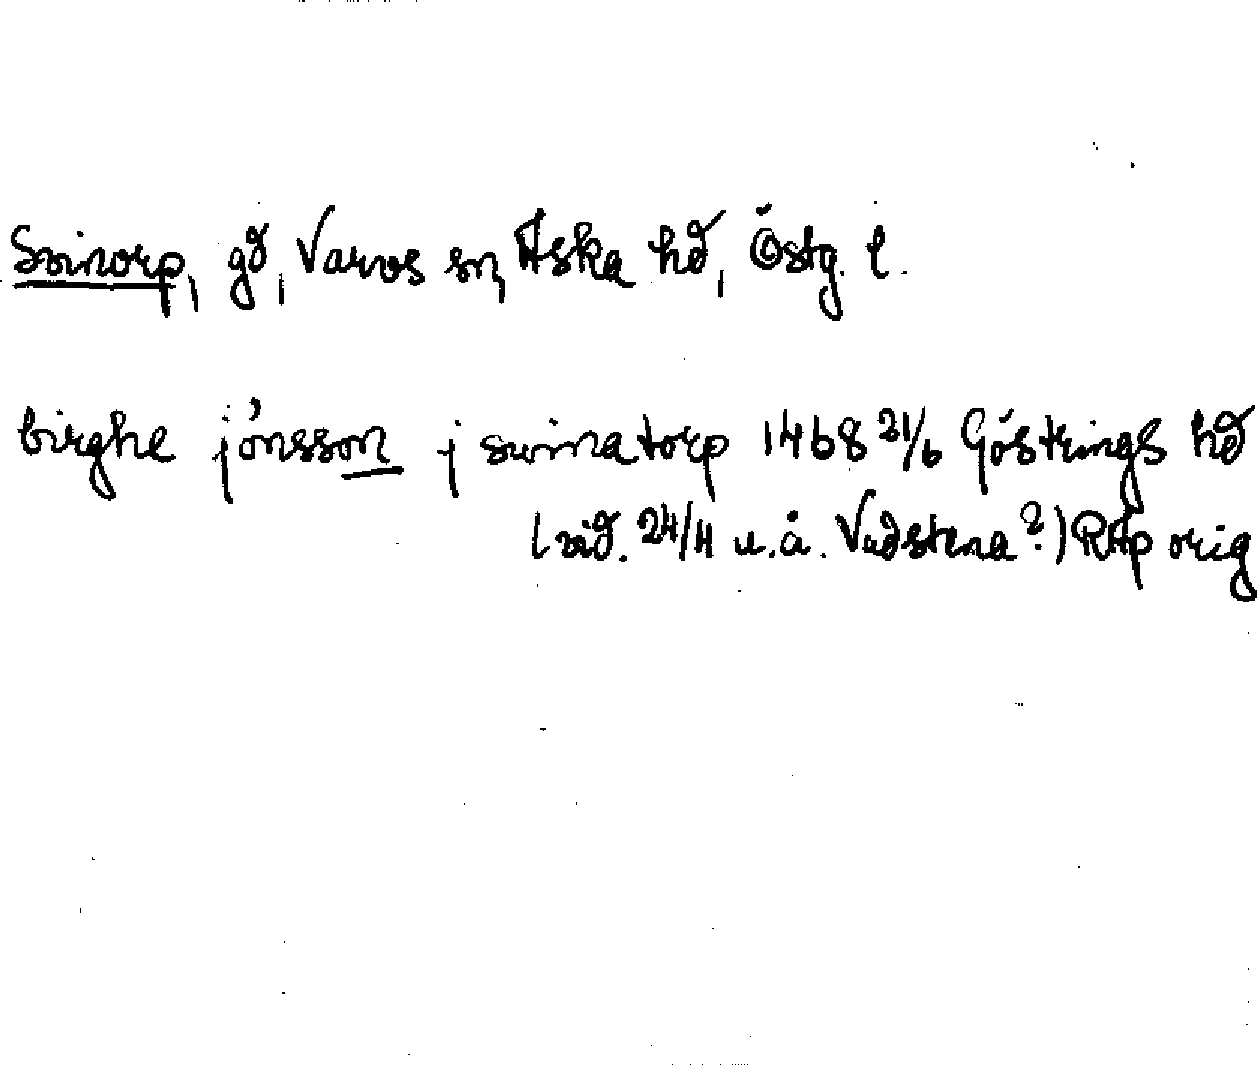 Svinorp, gd, Varvs sn, Aska hd, Östg. l.
birghe jönsson j swinatorp 1468 21/6 Göstrings hd
(vid. 24/4 u.å. Vadstena?) RAp orig